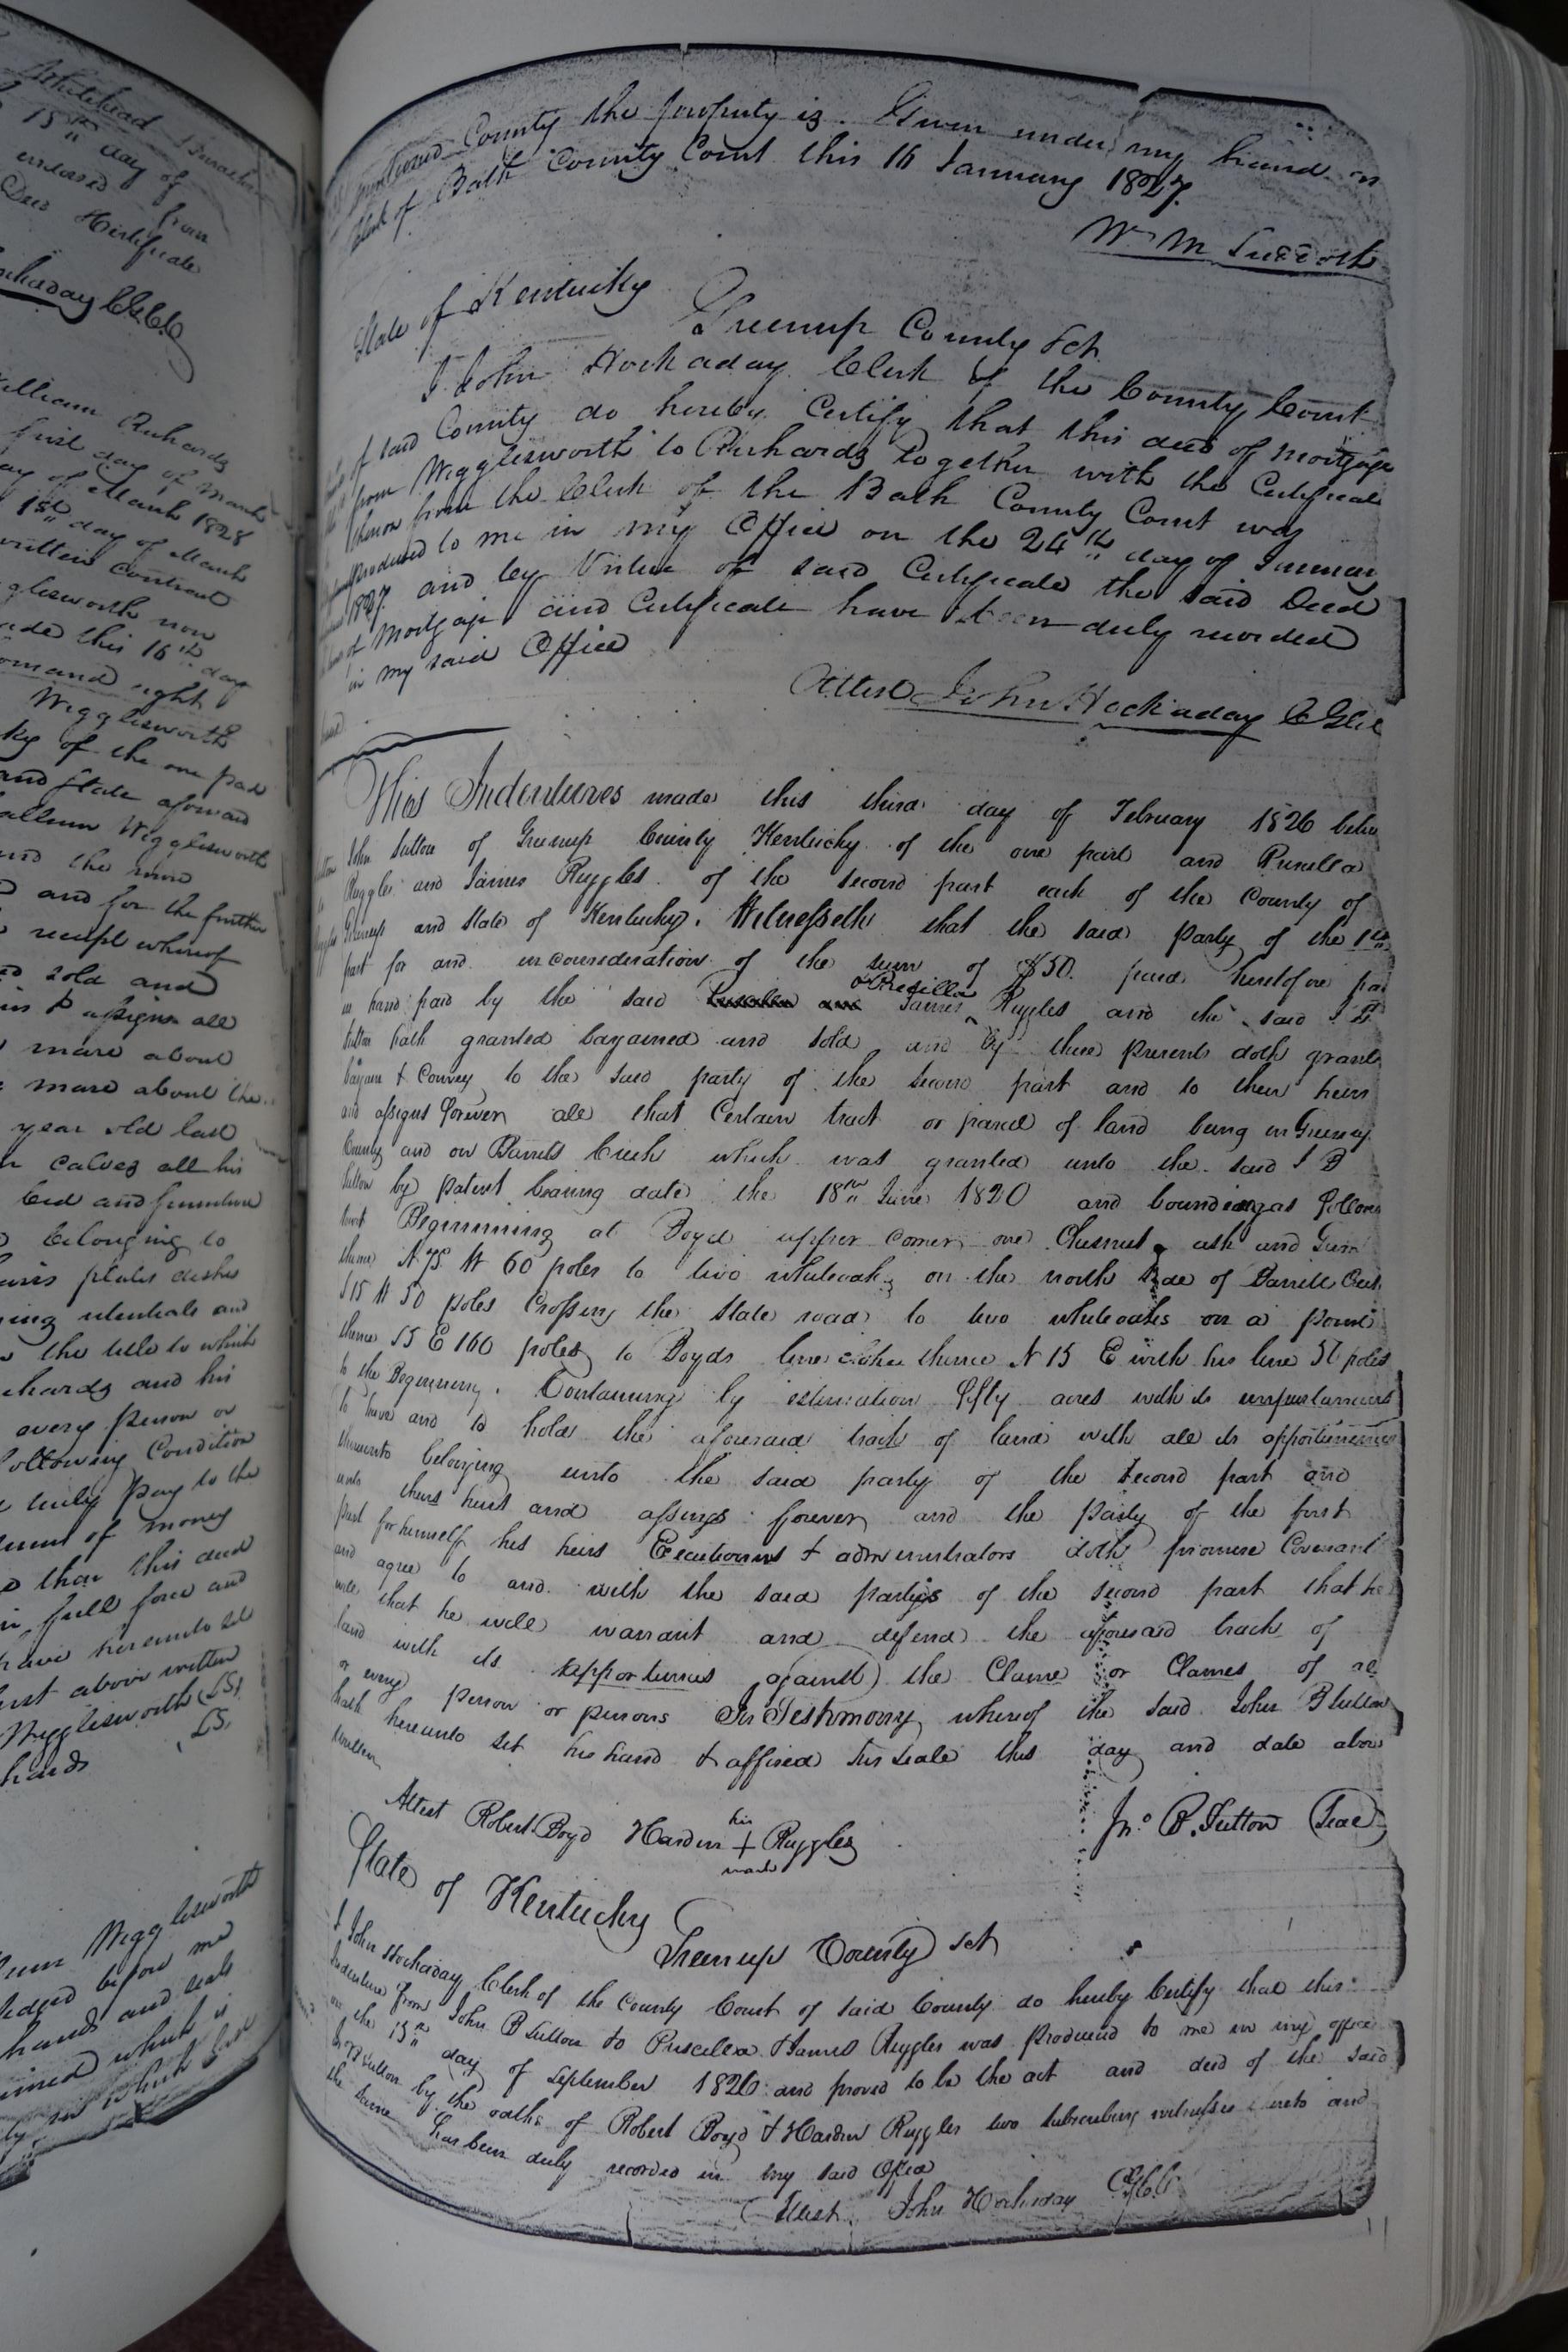 Whitehead
15th day of
endorsed from
Deed & Certificate
Hockaday C.G.C.C.
William Richards
first day of March
day of March 1828
1st day of March
written contract
Wigglesworth now
made this 16th day
demand right
Wigglesworth
ky of the one part
and State aforesaid
William Wigglesworth
and the
and for the further
receipt whereof
sold and
& assigns all
mare about
mare about the
year old last
calves all his
bed and furniture
belonging to
plates dishes
utentials and
the title to which
Richards and his
every person or
following Condition
truly pay to the
of money
than this deed
in full force and
have hereunto set
first above written
Wigglesworth (LS)
LS
Wigglesworth
before me
hands and seals
which is
in which
County the property is. Given under my hand as
Clerk of Bath County Court this 16 January 1827.
Wm M Suddoth
State of Kentucky
Greenup County Sct
I John Hockaday Clerk of the County Court
of said County do hereby Certify that this deed of mortgage
from Wigglesworth to Richards together with the Certificate
thereon from the Clerk of the Bath County Court was
produced to me in my Office on the 24th day of January
1827. and by Virtue of said Certificate the said Deed
of Mortgage and Certificate have been duly recorded
in my said Office
Attest John Hockaday C G C C
This Indentures made this third day of February 1826 betw
John Sutton of Greenup County Kentucky of the one part and Prisella
Ruggles and James Ruggles of the second part each of the County of
Greenup and State of Kentucky. Witnesseth that the said Party of the 1st
part for and in consideration of the sum of $50. paid heretofore
in hand paid by the said James & Presilla Ruggles and the said J B
Sutton hath granted bargained and sold and by these presents doth grant
bargain & Convey to the said party of the second part and to their heirs
and assigns forever all that Certain tract or parcel of land being in Greenup
County and on Barrets Creek which was granted unto the said J B
Sutton by patent bearing date the 18th June 1820 and bounding as follows
towit Beginning at Boyd upper corner one Chesnut ash and Gum
thence N 75 W 60 poles to two whiteoaks on the north side of Barrett Creek
S 15 W 50 poles Crossing the State road to two whiteoaks on a point
thence S 5 E 160 poles to Boyds line thence N 15 E with his line 50 poles
to the Beginning. Containing by estimation fifty acres with its
to have and to hold the aforesaid track of land with all its
thereunto belonging unto the said party of the second part and
unto theirs heirs and assings forever and the party of the first
part for himself his heirs Executioners & administrators doth promise Covenant
and agree to and with the said parties of the second part that he
will that he will warrant and defend the aforesaid track of
land with its against the Claime or Clames of all
or every person or persons In Testimony whereof the said John B Sutton
hath hereunto set his hand & affixed his seale this day and date above
written
Attest Robert Boyd Harden his + mark Ruggles
Jno B. Sutton (Seal)
State of Kentucky
Greenup County sct
I John Hockaday Clerk of the County Court of said County do hereby Certify that this
Indenture from John B Sutton to Priscella & James Ruggles was produced to me in my office
on the 15th day of September 1826 and proved to be the act and deed of the said
Jno B Sutton by the oaths of Robert Boyd & Harden Ruggles two subscribing witnesses thereto and
the same has been duly recorded in my said Office
Attest. John Hockaday C.G.C.C.